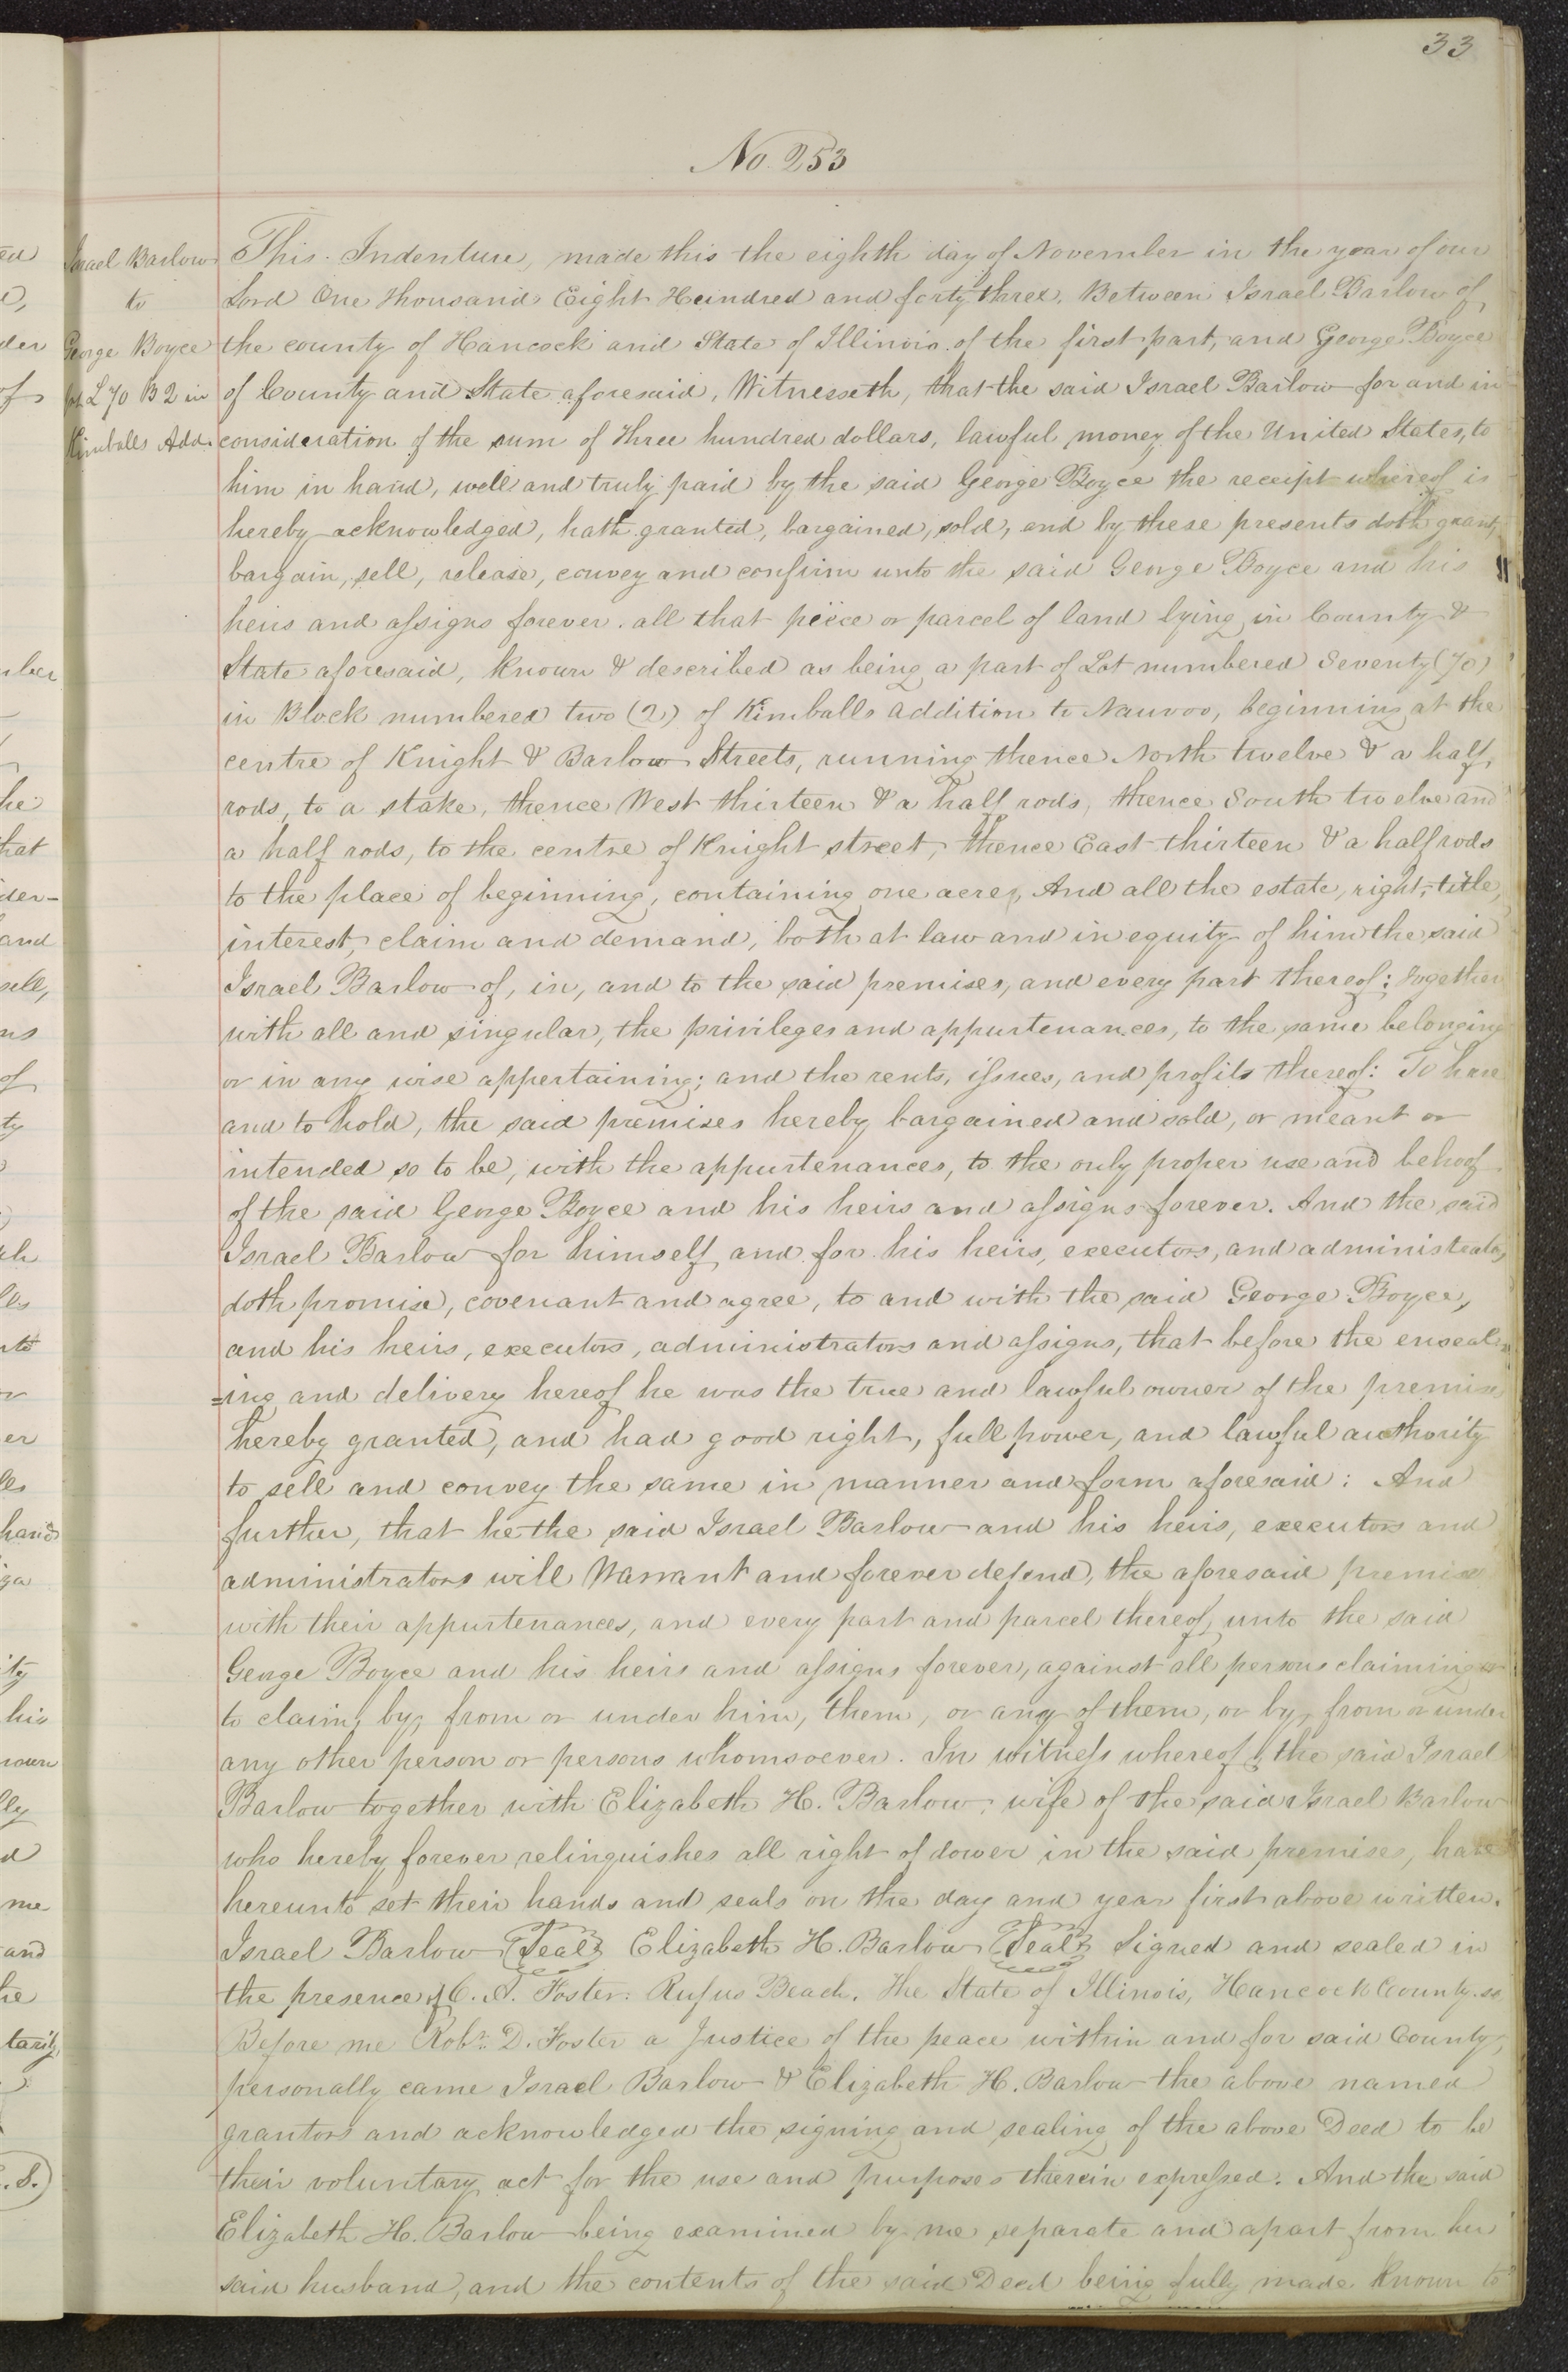 33
No. 253
Israel Barlow
to
George Boyce
pt L 70 B 2 in
Kimballs Add.
This Indenture, made this the eighth day of November in the year of our
Lord One thousand Eight Hundred and forty three. Between Israel Barlow of
the county of Hancock and State of Illinois of the first part, and George Boyce
of County and State aforesaid, Witnesseth, that the said Israel Barlow for and in
consideration of the sum of three hundred dollars, lawful money of the United States, to
him in hand, well and truly paid by the said George Boyce the receipt whereof is
hereby acknowledged, hath granted, bargained, sold, and by these presents doth grant,
bargain, sell, release, convey and confirm unto the said George Boyce and his
heirs and assigns forever. all that piece or parcel of land lying in County &
State aforesaid, known & described as being a part of Lot numbered Seventy (70)
in Block numbered two (2) of Kimballs addition to Nauvoo, beginning at the
centre of Knight & Barlow Streets, running thence North twelve & a half
rods, to a stake, thence West thirteen & a half rods, thence South twelve and
a half rods, to the centre of Knight street, thence East thirteen & a half rods
to the place of beginning, containing one acre, And all the estate, right, title,
interest, claim and demand, both at law and in equity of him the said
Israel Barlow of, in, and to the said premises, and every part thereof: together
with all and singular, the privileges and appurtenances, to the same belonging
or in any wise appertaining; and the rents, issues, and profits thereof: To have
and to hold, the said premises hereby bargained and sold, or meant or
intended so to be, with the appurtenances, to the only proper use and behoof
of the said George Boyce and his heirs and assigns forever. And the said
Israel Barlow for himself and for his heirs, executors, and administrators,
doth promise, covenant and agree, to and with the said George Boyce,
and his heirs, executors, administrators and assigns, that before the enseal=
=ing and delivery hereof he was the true and lawful owner of the premises
hereby granted, and had good right, full power, and lawful authority
to sell and convey the same in manner and form aforesaid: And
further, that he the said Israel Barlow and his heirs, executors and
administrators will Warrant and forever defend, the aforesaid premises
with their appurtenances, and every part and parcel thereof, unto the said
George Boyce and his heirs and assigns forever, against all persons claiming or
to claim, by, from or under him, them, or any of them, or by, from or under
any other person or persons whomsoever. In witness whereof, the said Israel
Barlow together with Elizabeth H. Barlow, wife of the said Israel Barlow
who hereby forever relinquishes all right of dower in the said premises, have
hereunto set their hands and seals on the day and year first above written.
Israel Barlow (Seal) Elizabeth H. Barlow (Seal) Signed and sealed in
the presence of C. A. Foster. Rufus Beach. The State of Illinois, Hancock County. ss
Before me Robt. D. Foster a Justice of the peace within and for said County,
personally came Israel Barlow & Elizabeth H. Barlow the above named
grantors and acknowledged the signing and sealing of the above Deed to be
their voluntary act for the use and purposes therein expressed. And the said
Elizabeth H. Barlow being examined by me separate and apart from her
said husband, and the contents of the said Deed being fully made known to